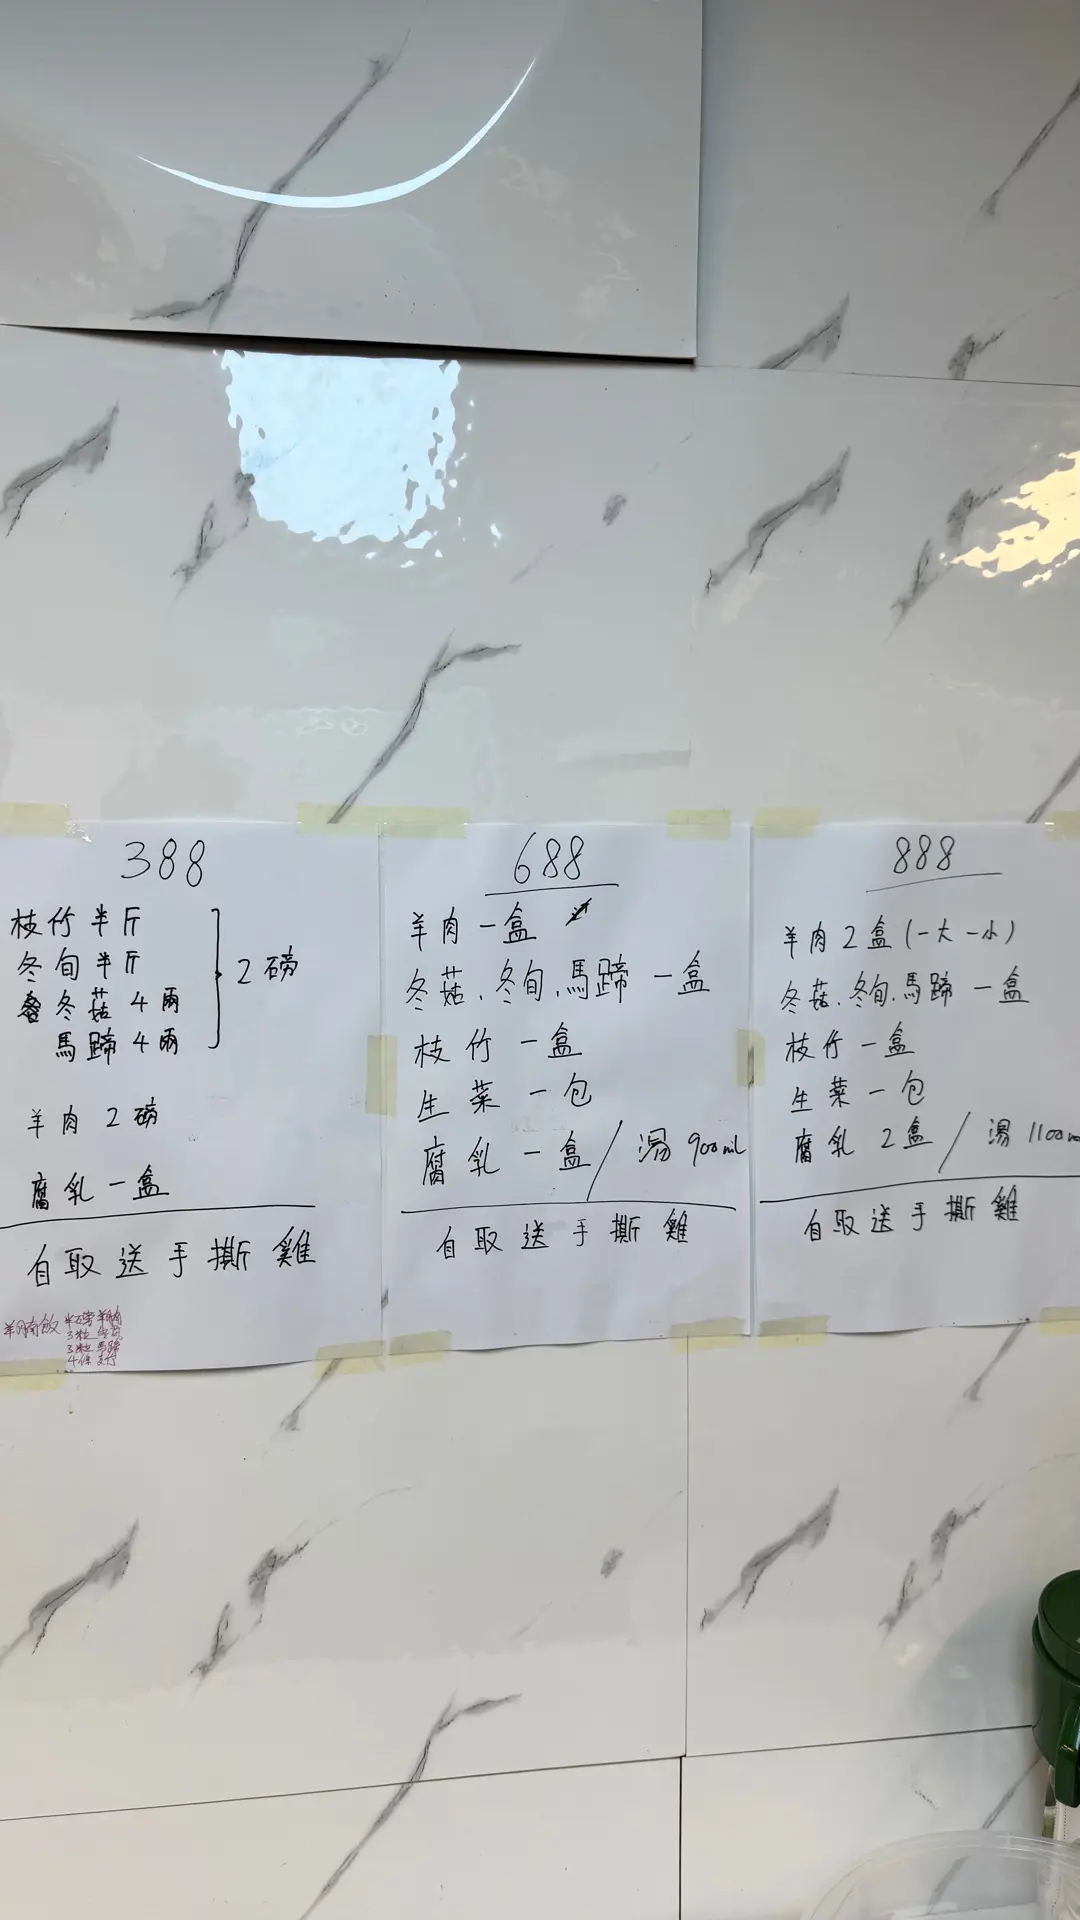 388
枝竹半斤
冬旬半斤
冬菇4兩
馬蹄4兩
2磅
羊肉2磅
腐乳一盒
自取送手撕雞
羊腩飯
半磅羊腩
3粒冬菇
3粒馬蹄
4条支竹
688
羊肉一盒
冬菇、冬旬、馬蹄一盒
枝竹一盒
生菜一包
腐乳一盒/湯900ml
自取送手撕雞
888
羊肉2盒(一大一小)
冬菇、冬旬、馬蹄一盒
枝竹一盒
生菜一包
腐乳2盒/湯1100m
自取送手撕雞